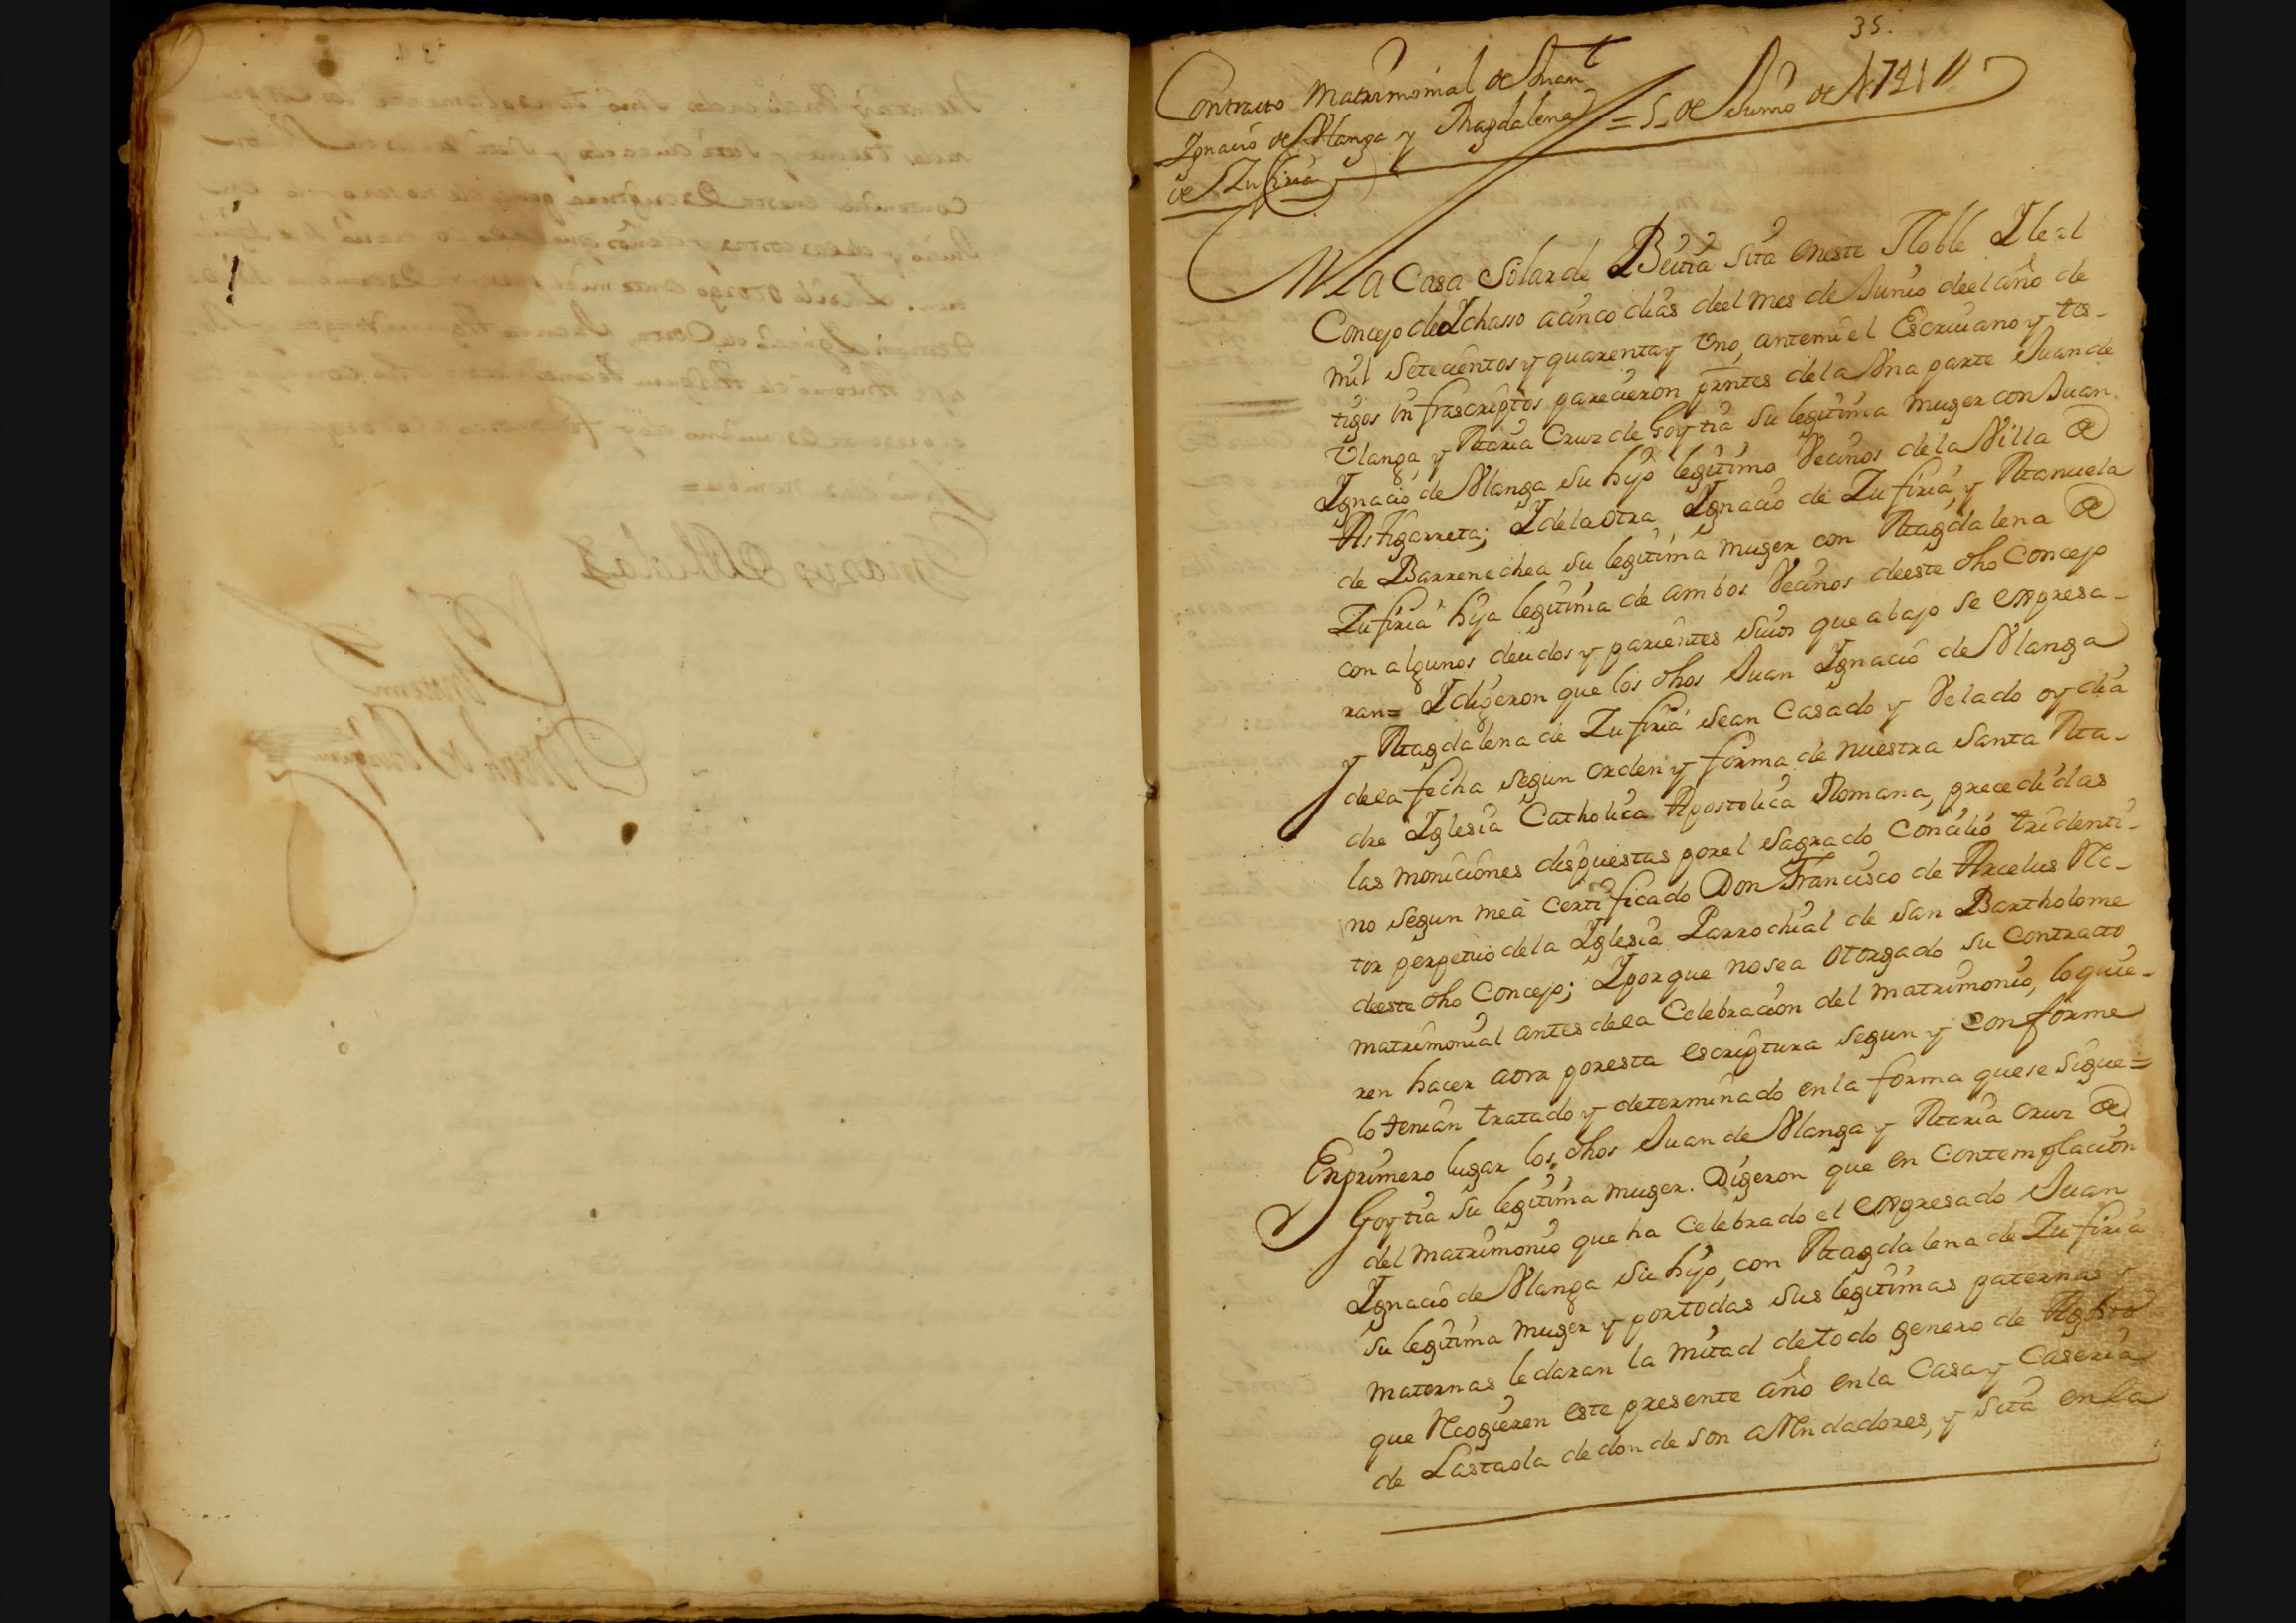 35.
Contracto Matrimonial de Juan
Ignacio de Vlanga y Magdalena = 5 de Junio de 1741
de Zufiria
En la Casa Solar de Beitia sita eneste Noble Y leal
Concejo de Ychasso acinco dias deel mes de Junio deel año de
mil Setecientos y quarentay Vno, antemi el Escriuano y tes-
tigos infrascriptos parecieron prntes dela Vna parte Juan de
Vlanga y Maria Cruz de Goytia su legitima muger con Juan
Ignacio de Vlanga su hijo legitimo Vecinos dela Villa de
Astigarreta; Y dela otra Ignacio de Zufiria, y Manuela
de Barrenechea su legitima muger con Magdalena de
Zufiria hija legitima de ambos Vecinos deeste dho Concejo
con algunos deudos y parientes suios que abajo se expresa-
ran= Y digeron que los dhos Juan Ignacio de Vlanga
y Magdalena de Zufiria sean Casado y Velado oy dia
dela fecha segun orden y forma de nuestra Santa Ma-
dre Yglesia Catholica Apostolica Romana, precedidas
las moniciones dispuestas porel Sagrado Concilio tridenti-
no segun mea certificado Don Francisco de Arcelus Rec-
tor perpetuo dela Yglesia Parrochial de san Bartholome
deeste dho Concejo; Y porque nosea otorgado su Contracto
matrimonial antes dela Celebracion del matrimonio, lo quie-
ren hacer aora poresta escriptura segun y conforme
lo tenian tratado y determinado en la forma quese sigue=
Enprimero lugar los dhos Juan de Vlanga y Maria Cruz de
Goytia su legitima muger. Digeron que en Contemplacion
del matrimonio que ha Celebrado el expresado Juan
Ignacio de Vlanga su hijo, con Magdalena de Zufiria
su legitima muger y portodas sus legitimas paternas y
maternas ledaran la mitad de todo genero de Agosto
que Recogieren este presente año en la Casa y Caseria
de Lastaola de donde son aRendadores, y sita en la